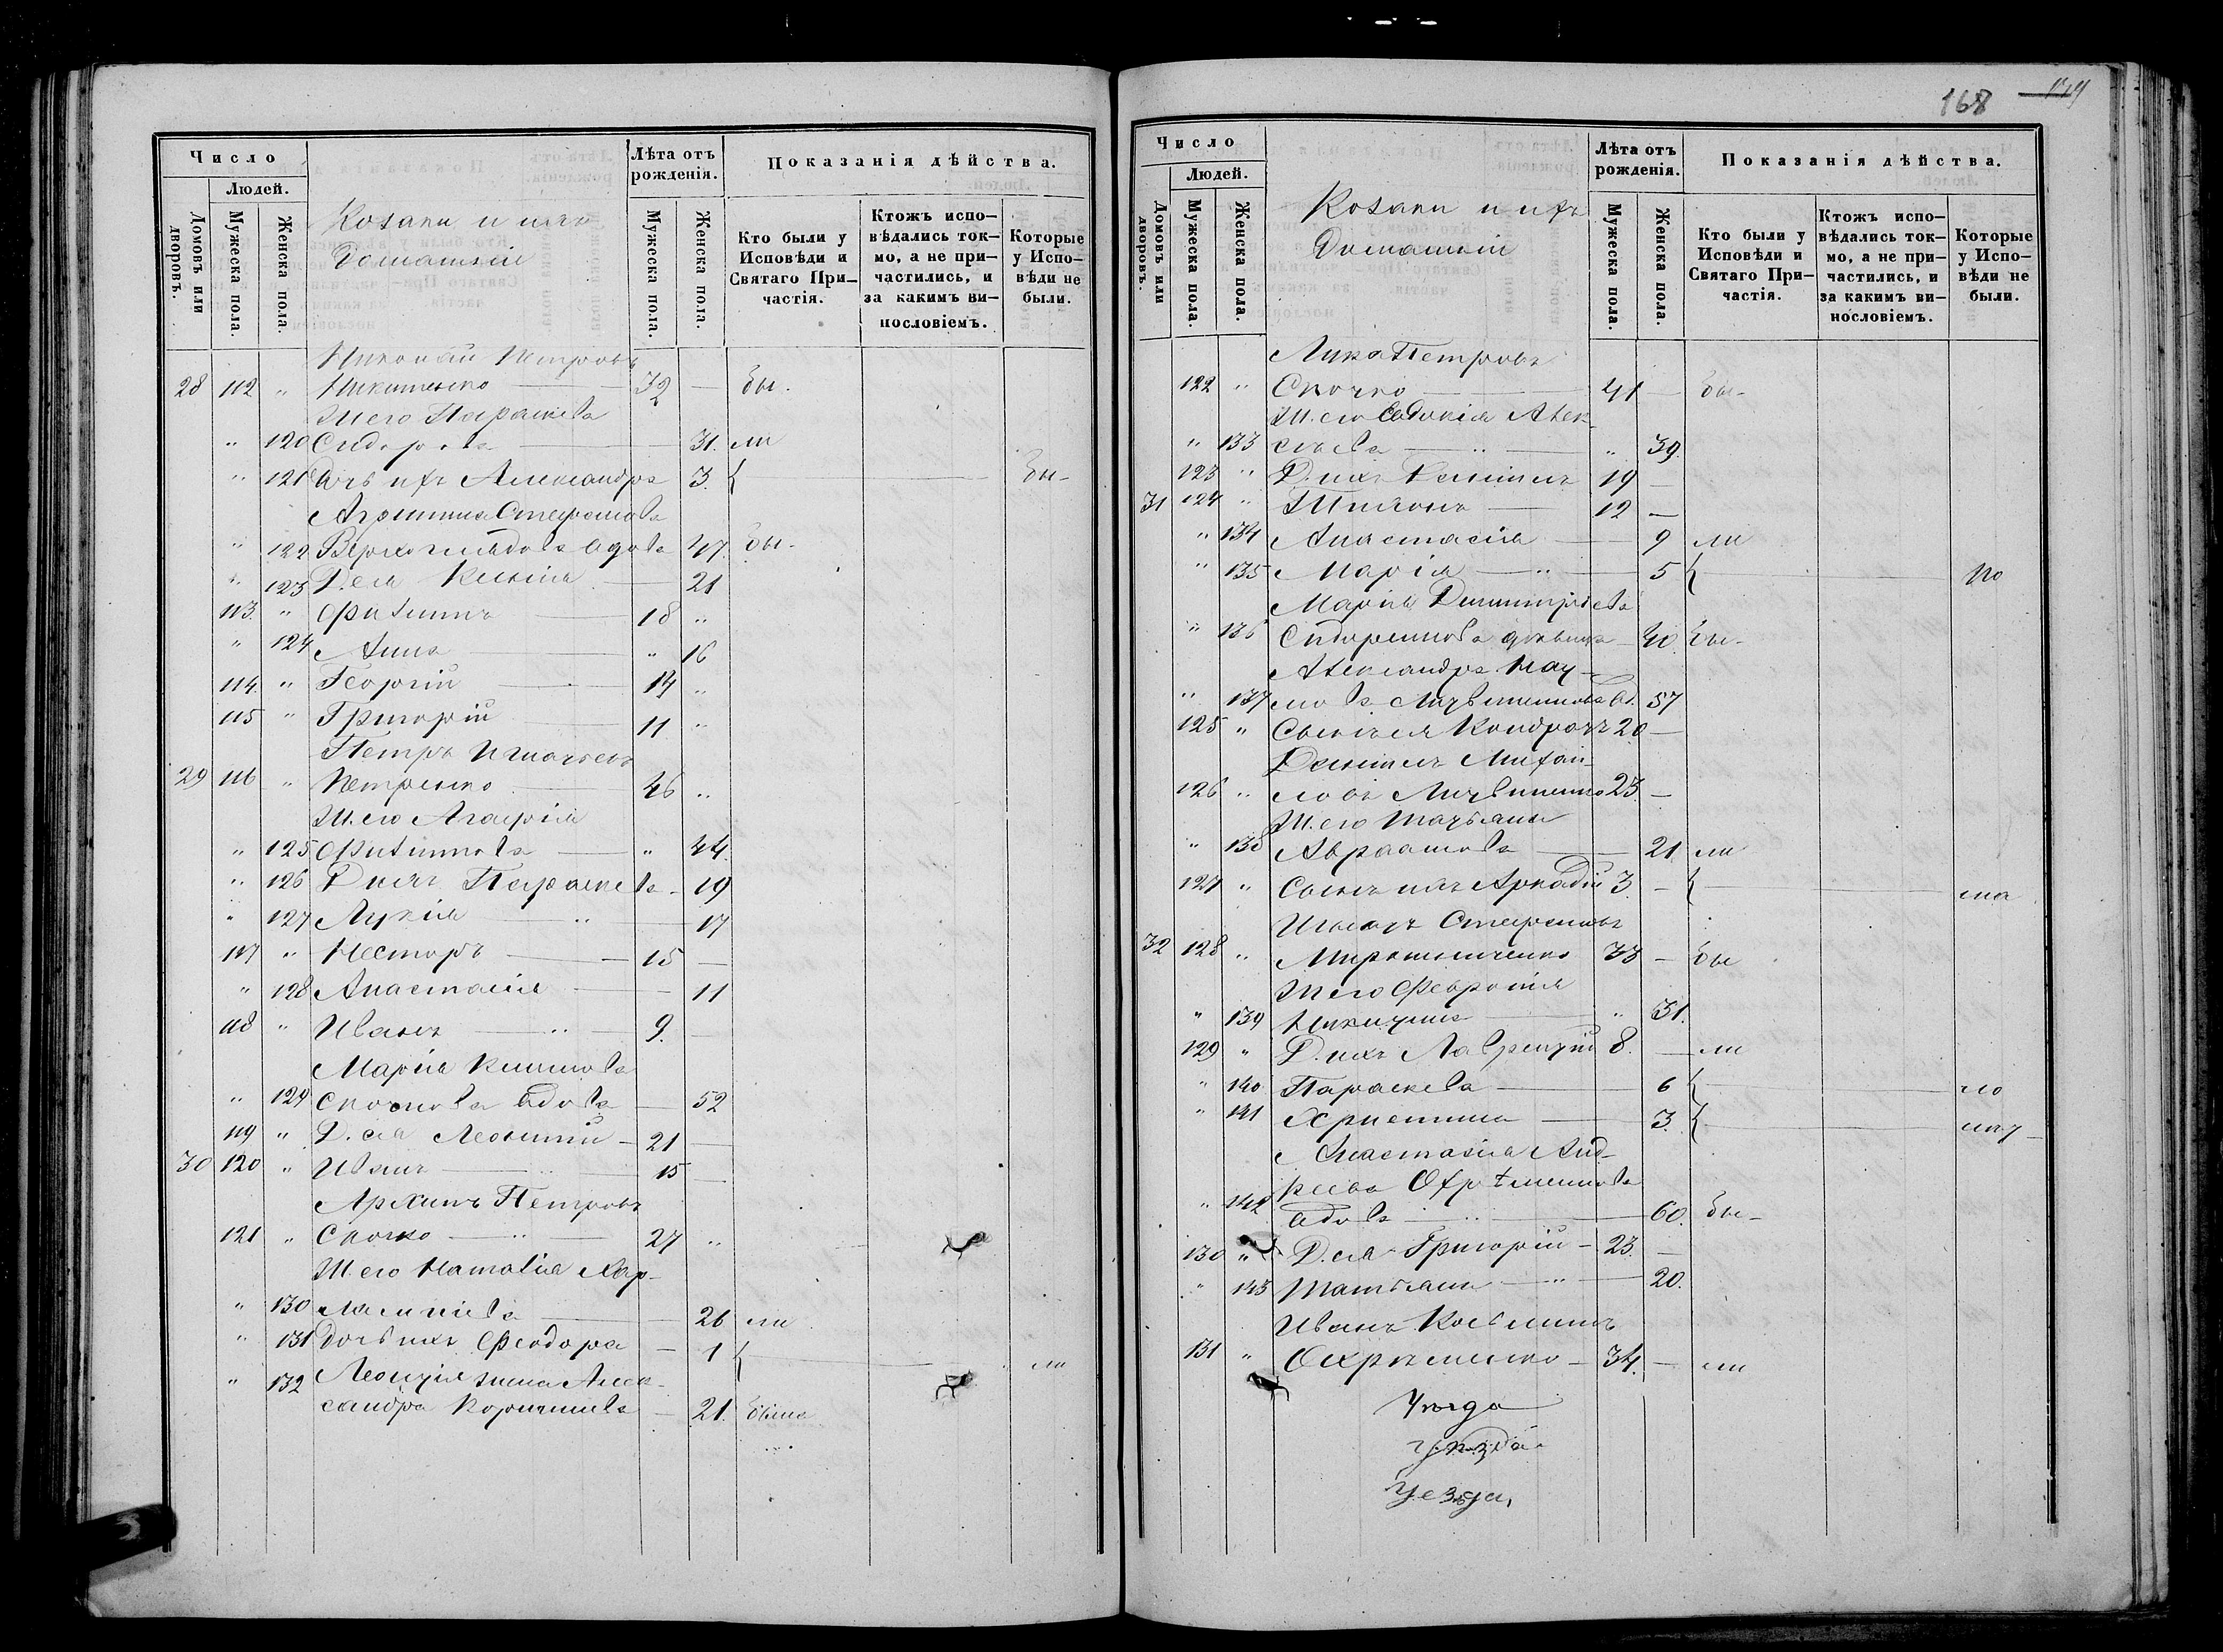 168 179
Число
Людей.
Домовъ или дворовъ.
Мужеска пола.
Женска пола.
Козаки и ихъ
Домашніи
Лѣта отъ рожденія.
Мужеска пола.
Женска пола.
Показанія дѣйства.
Кто были у Исповѣди и Святаго Причастія.
Ктожъ исповѣдались токмо, а не причастились, и за какимъ винословіемъ.
Которые у Исповѣди не были.
Николай Петровъ
28 112 " Никитенко — 32 — бы-
Ж. его Параскева
" 120 Сидорова — 31. ли
" 121 Дочь ихъ Александра 3. бы-
Агрипина Стефанова
" 122 вдова 47. бы-
" 123 Д. ея Ксенія — 21
113. " Филиппъ — 18 "
" 124 Анна — " 16
114. " Георгій — 14 "
115 " Григорій — 11 "
Петръ Игнатьевъ
29 116 " Петренко — 46 "
Ж. его Агафія
" 125 Филиппова — " 44.
" 126 Д. ихъ Параскева - 19
" 127 Лукія — " — 17
117 " Несторъ — 15 —
" 128 Анастасія — 11
118 " Иванъ — " — 9. —
Марія Климова
" 129 Скочкова вдова — 52
119 " Д. ея Леонтій — 21 —
30 120 " Иванъ — 15 —
Архипъ Петровъ
121 " Скочко — " — 27 "
Ж. его Наталія Хар-
" 130 лампіева — 26 ли
" 131 Дочь ихъ Феодора — 1 — ли
" 132 Леонтія жена Алек-
сандра — 21. была
Число
Людей.
Домовъ или дворовъ.
Мужеска пола.
Женска пола.
Козаки и ихъ
Домашніи
Лѣта отъ рожденія.
Мужеска пола.
Женска пола.
Показанія дѣйства.
Кто были у Исповѣди и Святаго Причастія.
Ктожъ исповѣдались токмо, а не причастились, и за какимъ винословіемъ.
Которые у Исповѣди не были.
Лука Петровъ
122 " Скочко — 41 — бы-
Ж. его Евдокія Алек-
" 133 сѣева — " — " 39.
123 " Д. ихъ Даніилъ 19 —
31 124 " — 12 —
" 134 Анастасія — 9 ли
" 135 Марія — " — 5 — по
Марія Димитріева
" 136 Сидоренкова дѣвица — 40. бы-
Александра Нау-
" 137 мова Литвиненкова вд. 57
125 " Сынъ ея Кондратъ 20 —
Даніилъ Михаи-
126 " ловъ Литвиненко 23. —
Ж. его Татьяна
" 138 Авраамова — 21 ли
127 " Сынъ ихъ Аркадій 3. — ма
Игнатъ Стефановъ
32 128 " Мирошниченко 33 — бы
Ж. его Февронія
" 139 Никитина — " 31.
129 " Д. ихъ Лаврентій 8. — ли
" 140 Параскева — 6 — ло
" 141 Христина — 3. —
Анастасія Анд-
реева Охрѣменкова
" 142 вдова — " — 60. бы-
130 " Д. ея Григорій — 23. —
" 143 Татьяна — " — 20.
Иванъ Косьминъ
131 " Охрѣменко — 34. — ли
Уезда,